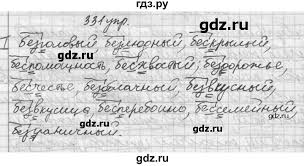 гдз.ру
331упр.
I безголовый, безлюдный, бескрылый,
беспомощность, бесхвостый; бездорожье,
бесчестье, безоблачный, безвкусный,
безвкусица, бесперебойно, бессемейный,
безграничный.